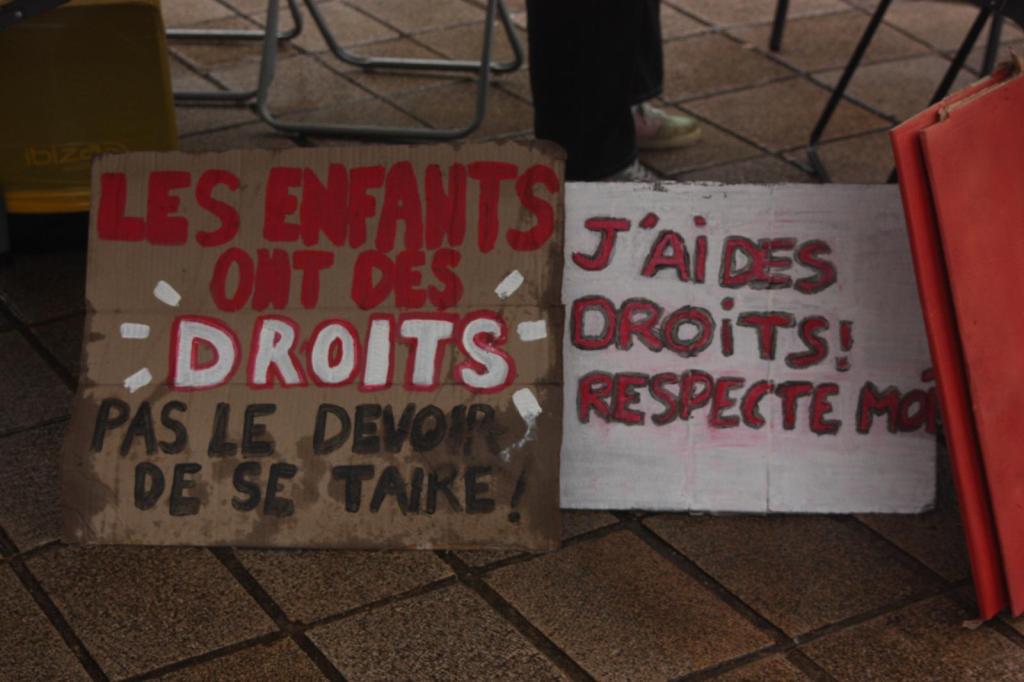 ibiza
LES ENFANTS
ONT DES
DROITS
PAS LE DEVOIR
DE SE TAIRE !
J'AI DES
DROITS!
RESPECTE MOI